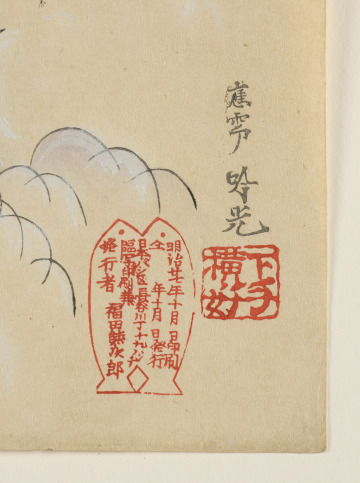 應需 吟光
下手
横好
明治廿七年十月 日印刷
仝 年十月 日発行
日本橋区長谷川丁十九バンチ
臨写印刷兼
発行者 福田熊次郎